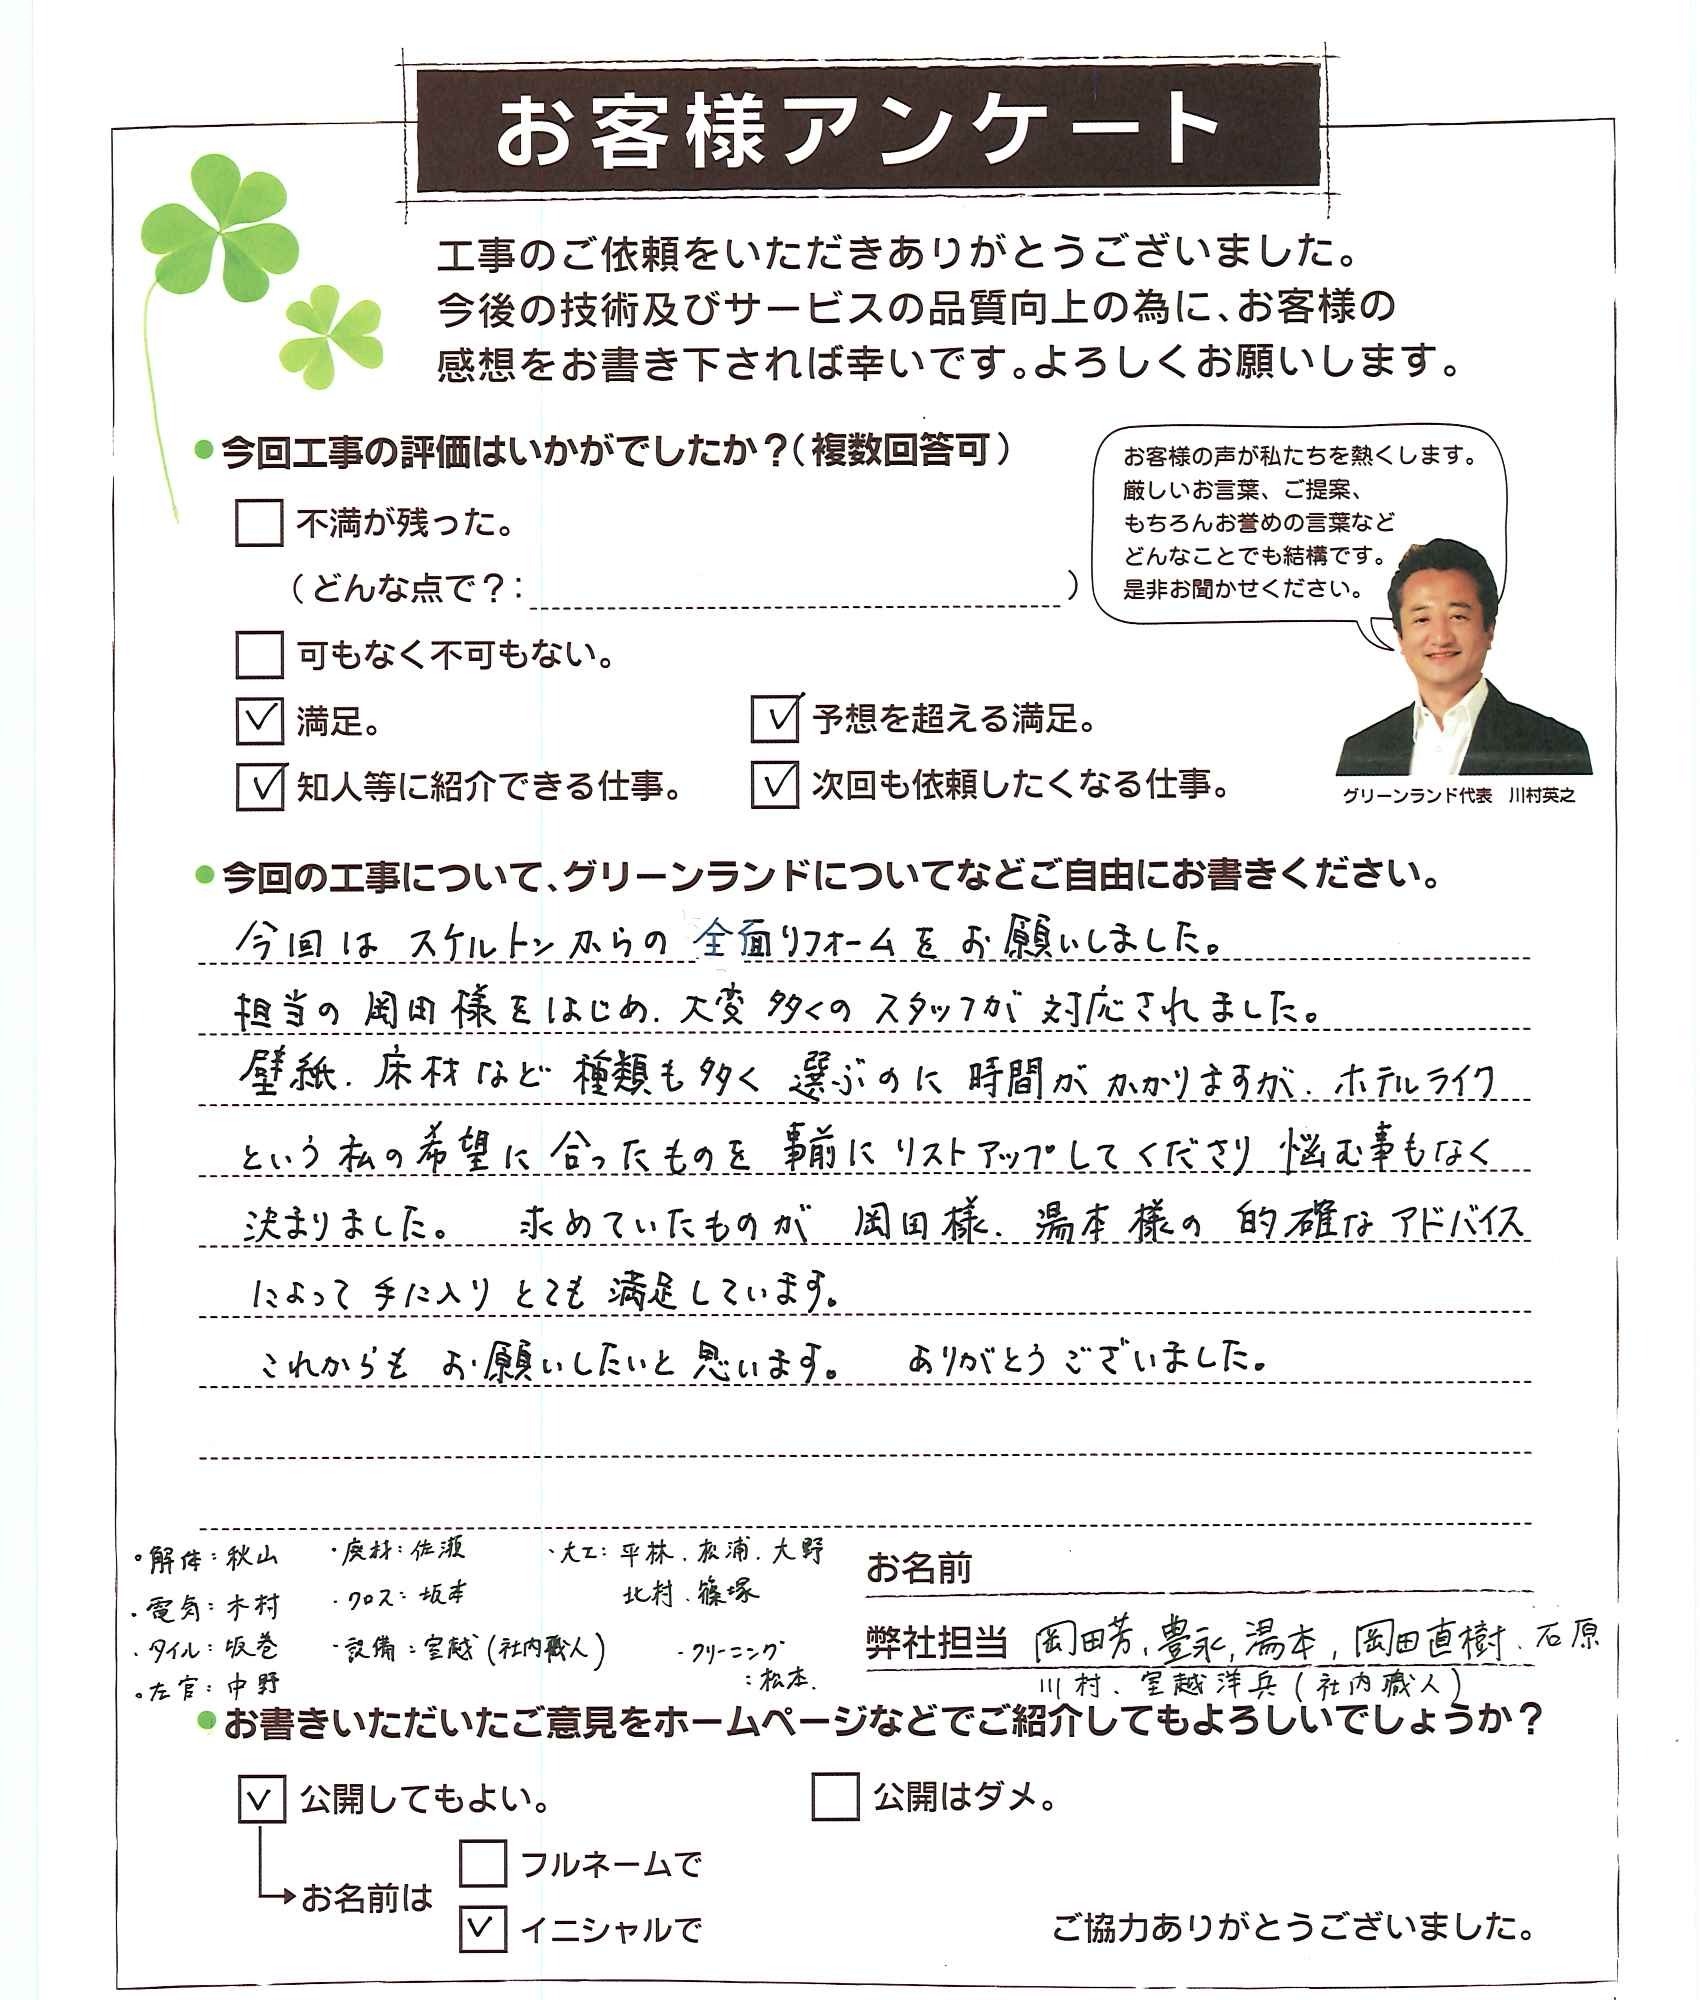 お客様アンケート
工事のご依頼をいただきありがとうございました。
今後の技術及びサービスの品質向上の為に、お客様の
感想をお書き下されば幸いです。よろしくお願いします。
●今回工事の評価はいかがでしたか？（複数回答可）
お客様の声が私たちを熱くします。
厳しいお言葉、ご提案、
もちろんお誉めの言葉など
どんなことでも結構です。
是非お聞かせください。
□ 不満が残った。
（どんな点で？：　　　）
□ 可もなく不可もない。
☑ 満足。
☑ 予想を超える満足。
☑ 知人等に紹介できる仕事。
☑ 次回も依頼したくなる仕事。
グリーンランド代表　川村英之
●今回の工事について、グリーンランドについてなどご自由にお書きください。
今回は スケルトンからの 全面リフォームを お願いしました。
担当の 岡田様をはじめ、大変 多くの スタッフが 対応されました。
壁紙、床材など 種類も多く 選ぶのに 時間が かかりますが、ホテルライク
という 私の希望に 合ったものを 事前に リストアップしてくださり 悩む事もなく
決まりました。　求めていたものが 岡田様、湯本様の 的確な アドバイス
によって 手に入り とても 満足しています。
これからも お願いしたいと 思います。　ありがとう ございました。
・解体：秋山　・廃材：佐瀬　・大工：平林、松浦、大野
・電気：木村　・クロス：坂本　北村、篠塚
・タイル：坂巻　・設備：室越（社内職人）　・クリーニング
・左官：中野　：松本
お名前
弊社担当 岡田芳、豊永、湯本、岡田直樹、石原
川村、室越洋兵（社内職人）
●お書きいただいたご意見をホームページなどでご紹介してもよろしいでしょうか？
☑ 公開してもよい。
□ 公開はダメ。
→お名前は
□ フルネームで
☑ イニシャルで
ご協力ありがとうございました。